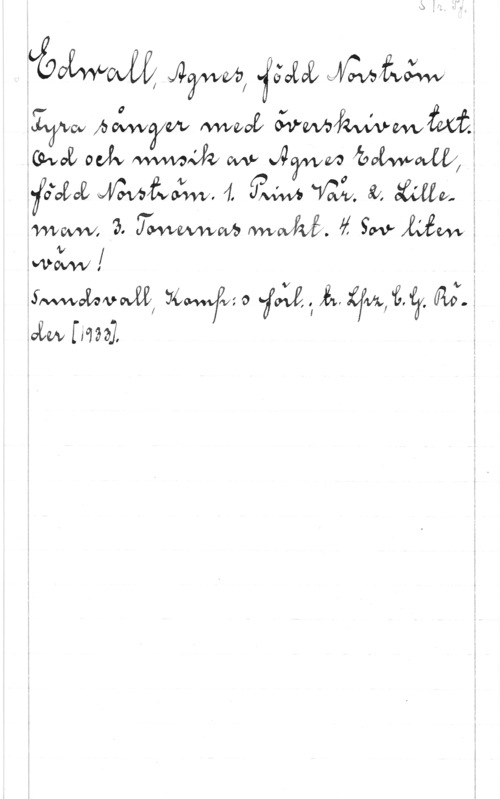 S fr. Pf.
Edwall, Agnes, född Norström
Fyra sånger med överskriven text.
Ord och musik av Agnes Edwall,
född Norström. 1. Prins Vår. 2. Lille-
man. 3. Tonernas makt. 4. Sov liten
vän!
Sundsvall, Komp:s förl.; tr. Lpz, C. G. Rö-
der [1933].